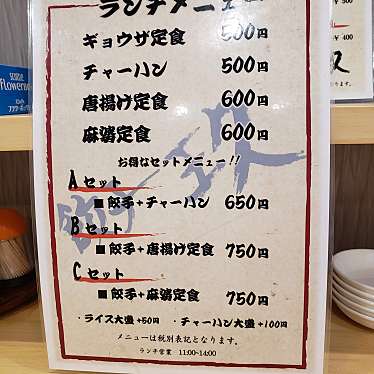 ランチメニュー
ギョウザ定食 500円
チャーハン 500円
唐揚げ定食 600円
麻婆定食 600円
お得なセットメニュー!!
Aセット
■餃子+チャーハン 650円
Bセット
■餃子+唐揚げ定食 750円
Cセット
■餃子+麻婆定食 750円
・ライス大盛+50円 ・チャーハン大盛+100円
メニューは税別表記となります。
ランチ営業 11:00~14:00
¥500
¥400